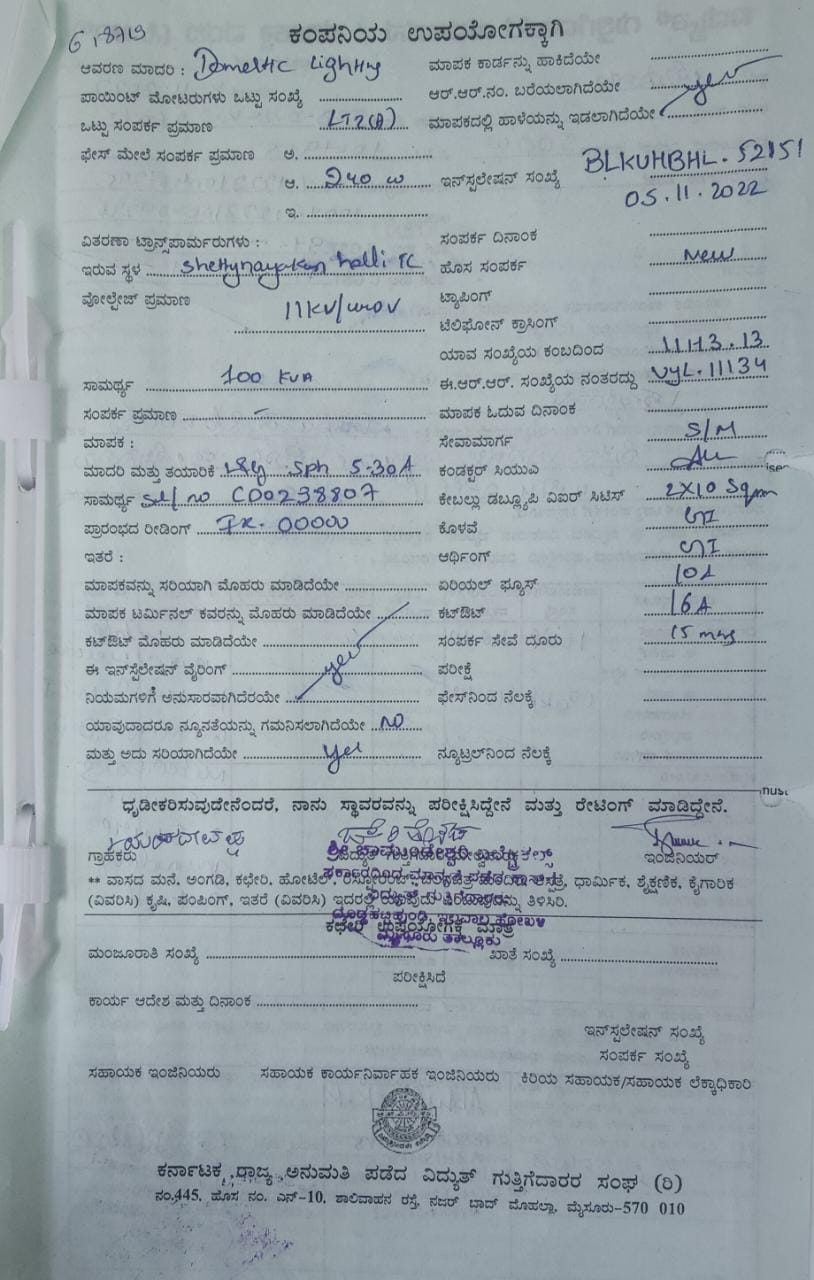 6,8719
ಕಂಪನಿಯ ಉಪಯೋಗಕ್ಕಾಗಿ
ಆವರಣ ಮಾದರಿ : Domestic Lighting
ಪಾಯಿಂಟ್ ಮೋಟರುಗಳು ಒಟ್ಟು ಸಂಖ್ಯೆ
ಒಟ್ಟು ಸಂಪರ್ಕ ಪ್ರಮಾಣ LT2(A)
ಫೇಸ್ ಮೇಲೆ ಸಂಪರ್ಕ ಪ್ರಮಾಣ ಅ.
ಆ. 240 w
ಇ.
ವಿತರಣಾ ಟ್ರಾನ್ಸ್‌ಪಾರ್ಮರುಗಳು :
ಇರುವ ಸ್ಥಳ Shettynayakan halli TC
ವೋಲ್ಟೇಜ್ ಪ್ರಮಾಣ 11KV/
ಸಾಮರ್ಥ್ಯ 100 KVA
ಸಂಪರ್ಕ ಪ್ರಮಾಣ
ಮಾಪಕ :
ಮಾದರಿ ಮತ್ತು ತಯಾರಿಕೆ L&G Sph 5-30A
ಸಾಮರ್ಥ್ಯ Sl/no CD0238807
ಪ್ರಾರಂಭದ ರೀಡಿಂಗ್
ಇತರೆ :
ಮಾಪಕವನ್ನು ಸರಿಯಾಗಿ ಮೊಹರು ಮಾಡಿದೆಯೇ
ಮಾಪಕ ಟರ್ಮಿನಲ್ ಕವರನ್ನು ಮೊಹರು ಮಾಡಿದೆಯೇ
ಕಟ್‌ಔಟ್ ಮೊಹರು ಮಾಡಿದೆಯೇ
ಈ ಇನ್‌ಸ್ಟಲೇಷನ್ ವೈರಿಂಗ್ yes
ನಿಯಮಗಳಿಗೆ ಅನುಸಾರವಾಗಿದೆರಯೇ
ಯಾವುದಾದರೂ ನ್ಯೂನತೆಯನ್ನು ಗಮನಿಸಲಾಗಿದೆಯೇ NO
ಮತ್ತು ಅದು ಸರಿಯಾಗಿದೆಯೇ yes
ಮಾಪಕ ಕಾರ್ಡನ್ನು ಹಾಕಿದೆಯೇ
ಆರ್.ಆರ್.ನಂ. ಬರೆಯಲಾಗಿದೆಯೇ yes
ಮಾಪಕದಲ್ಲಿ ಹಾಳೆಯನ್ನು ಇಡಲಾಗಿದೆಯೇ
ಇನ್‌ಸ್ಪಲೇಷನ್ ಸಂಖ್ಯೆ BLKUHBHL.52151
05.11.2022
ಸಂಪರ್ಕ ದಿನಾಂಕ
ಹೊಸ ಸಂಪರ್ಕ New
ಟ್ಯಾಪಿಂಗ್
ಟೆಲಿಫೋನ್ ಕ್ರಾಸಿಂಗ್
ಯಾವ ಸಂಖ್ಯೆಯ ಕಂಬದಿಂದ 11113.13
ಈ.ಆರ್.ಆರ್. ಸಂಖ್ಯೆಯ ನಂತರದ್ದು VYL.11134
ಮಾಪಕ ಓದುವ ದಿನಾಂಕ
ಸೇವಾಮಾರ್ಗ S/M
ಕಂಡಕ್ಟರ್ ಸಿಯುವಿ
ಕೇಬಲ್ಲು ಡಬ್ಲ್ಯೂಪಿ ವಿಐರ್ ಸಿಟಿಸ್ 2X10 Sqmm
ಕೊಳವೆ GI
ಅರ್ಥಿಂಗ್ GI
ಏರಿಯಲ್ ಫ್ಯೂಸ್ 10A
ಕಟ್‌ಔಟ್ 16A
ಸಂಪರ್ಕ ಸೇವೆ ದೂರು 15 mts
ಪರೀಕ್ಷೆ
ಫೇಸ್‌ನಿಂದ ನೆಲಕ್ಕೆ
ನ್ಯೂಟ್ರಲ್‌ನಿಂದ ನೆಲಕ್ಕೆ
ಧೃಡೀಕರಿಸುವುದೇನೆಂದರೆ, ನಾನು ಸ್ಥಾವರವನ್ನು ಪರೀಕ್ಷಿಸಿದ್ದೇನೆ ಮತ್ತು ರೇಟಿಂಗ್ ಮಾಡಿದ್ದೇನೆ.
ಗ್ರಾಹಕರು
ಇಂಜಿನಿಯರ್
ಶ್ರೀ ಚಾಮುಂಡೇಶ್ವರಿ ಎಲೆಕ್ಟ್ರಿಕಲ್ಸ್
** ವಾಸದ ಮನೆ, ಅಂಗಡಿ, ಕಛೇರಿ, ಹೋಟೆಲ್, ಧಾರ್ಮಿಕ, ಶೈಕ್ಷಣಿಕ, ಕೈಗಾರಿಕ
(ವಿವರಿಸಿ) ಕೃಷಿ, ಪಂಪಿಂಗ್, ಇತರೆ (ವಿವರಿಸಿ) ಇದರಲ್ಲಿ ಯಾವುದು ತಿಳಿಸಿರಿ.
ಕಛೇರಿ ಉಪಯೋಗಕ್ಕೆ ಮಾತ್ರ
ಮೈಸೂರು ತಾಲ್ಲೂಕು
ಮಂಜೂರಾತಿ ಸಂಖ್ಯೆ
ಖಾತೆ ಸಂಖ್ಯೆ
ಪರೀಕ್ಷಿಸಿದೆ
ಕಾರ್ಯ ಆದೇಶ ಮತ್ತು ದಿನಾಂಕ
ಇನ್‌ಸ್ಪಲೇಷನ್ ಸಂಖ್ಯೆ
ಸಂಪರ್ಕ ಸಂಖ್ಯೆ
ಸಹಾಯಕ ಇಂಜಿನಿಯರು ಸಹಾಯಕ ಕಾರ್ಯನಿರ್ವಾಹಕ ಇಂಜಿನಿಯರು ಕಿರಿಯ ಸಹಾಯಕ/ಸಹಾಯಕ ಲೆಕ್ಕಾಧಿಕಾರಿ
ಕರ್ನಾಟಕ ರಾಜ್ಯ ಅನುಮತಿ ಪಡೆದ ವಿದ್ಯುತ್ ಗುತ್ತಿಗೆದಾರರ ಸಂಘ (ರಿ)
ನಂ.445, ಹೊಸ ನಂ. ಎನ್-10, ಶಾಲಿವಾಹನ ರಸ್ತೆ, ನಜರ್ ಬಾದ್ ಮೊಹಲ್ಲಾ, ಮೈಸೂರು-570 010